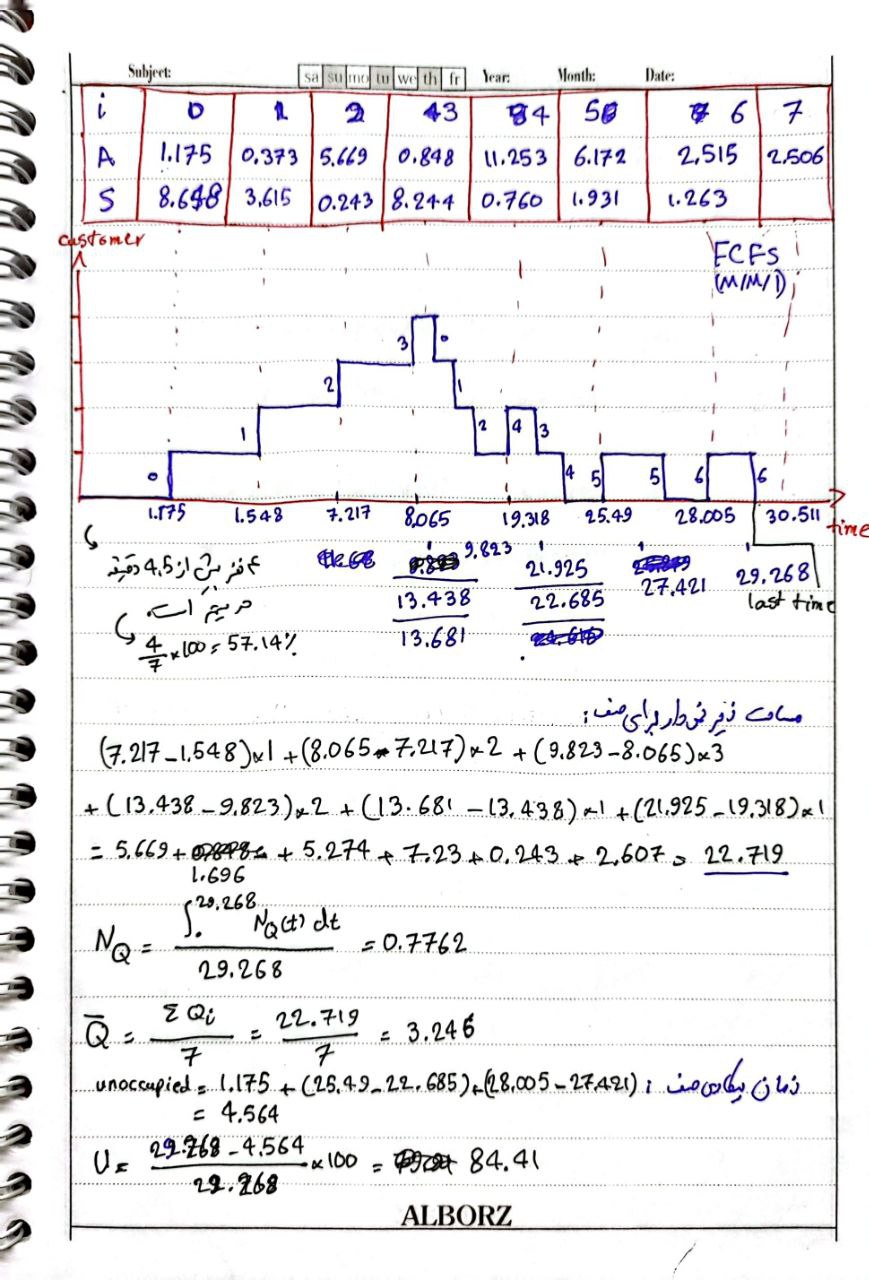 Subject: sa su mo tu we th fr Year: Month: Date:
i 0 1 2 3 4 5 6 7
A 1.175 0.373 5.669 0.848 11.253 6.172 2.515 2.506
S 8.648 3.615 0.243 8.244 0.760 1.931 1.263
customer
FCFS
(M/M/1)
3 0
2 1
1 2 4 3
0 4 5 5 6 6
1.175 1.548 7.217 8.065 19.318 25.49 28.005 30.511 time
9.823 21.925 27.421 29.268
13.438 22.685 last time
13.681
۴ نفر بیش از 4.5 دقیقه
در سیستم است.
4/7 × 100 = 57.14%
مساحت زیر نمودار برای صف:
(7.217 - 1.548)×1 + (8.065 - 7.217)×2 + (9.823 - 8.065)×3
+ (13.438 - 9.823)×2 + (13.681 - 13.438)×1 + (21.925 - 19.318)×1
= 5.669 + 1.696 + 5.274 + 7.23 + 0.243 + 2.607 = 22.719
N_Q = ∫₀^29.268 N_Q(t) dt / 29.268 = 0.7762
Q̄ = Σ Qi / 7 = 22.719 / 7 = 3.246
unoccupied = 1.175 + (25.49 - 22.685) + (28.005 - 27.421) : زمان بیکاری صف
= 4.564
U = 29.268 - 4.564 / 29.268 × 100 = 84.41
ALBORZ